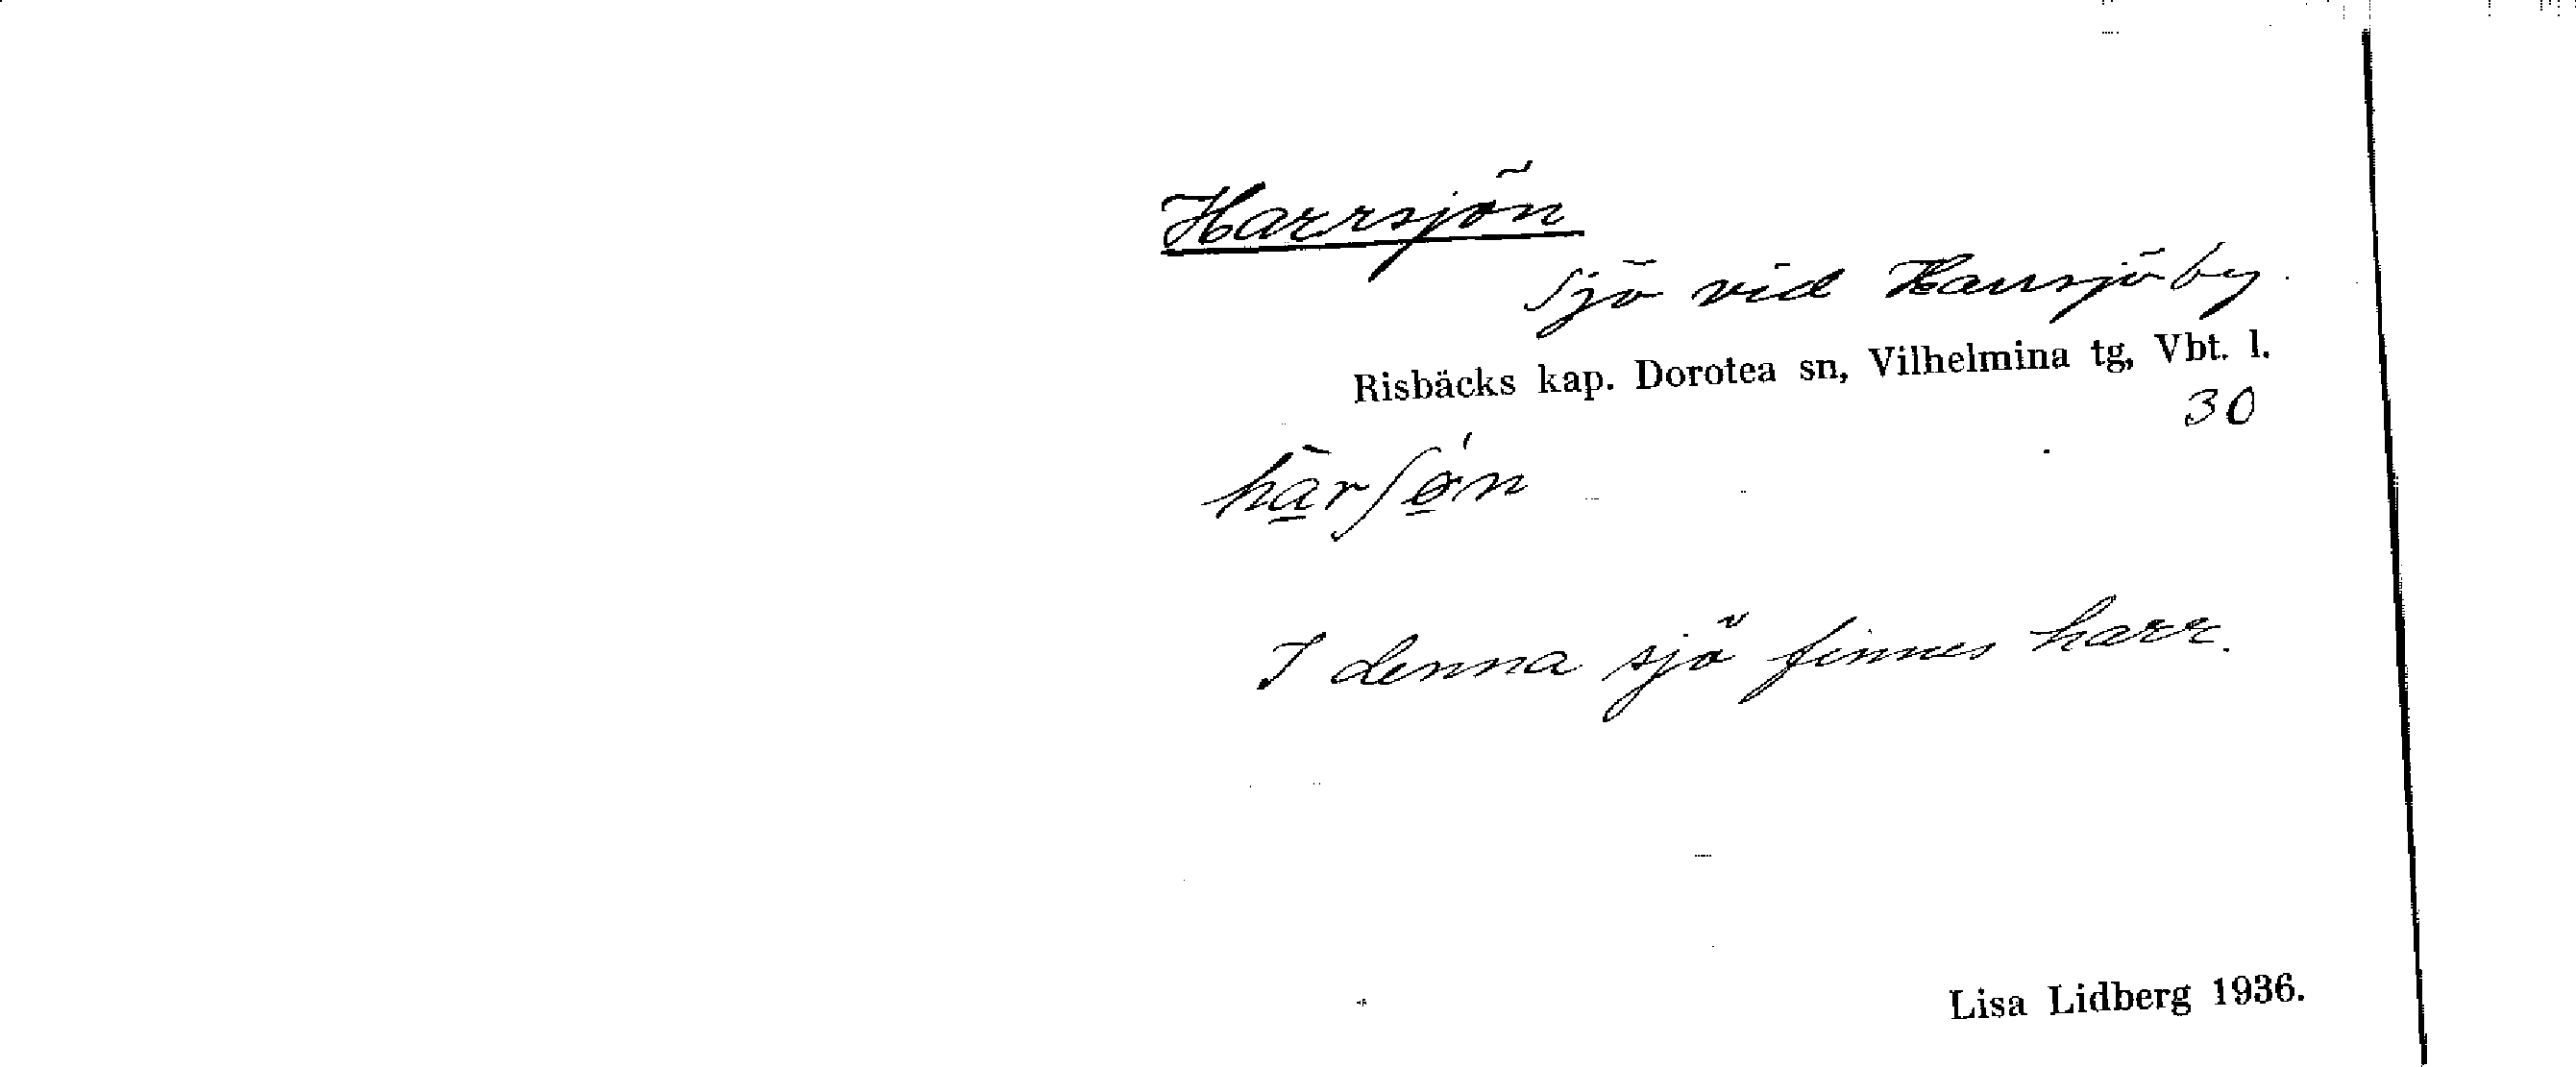 Harrsjön
Sjö vid Harrsjö by.
Risbäcks kap. Dorotea sn, Vilhelmina tg, Vbt. l.
30
I denna sjö finnes harr.
Lisa Lidberg 1936.